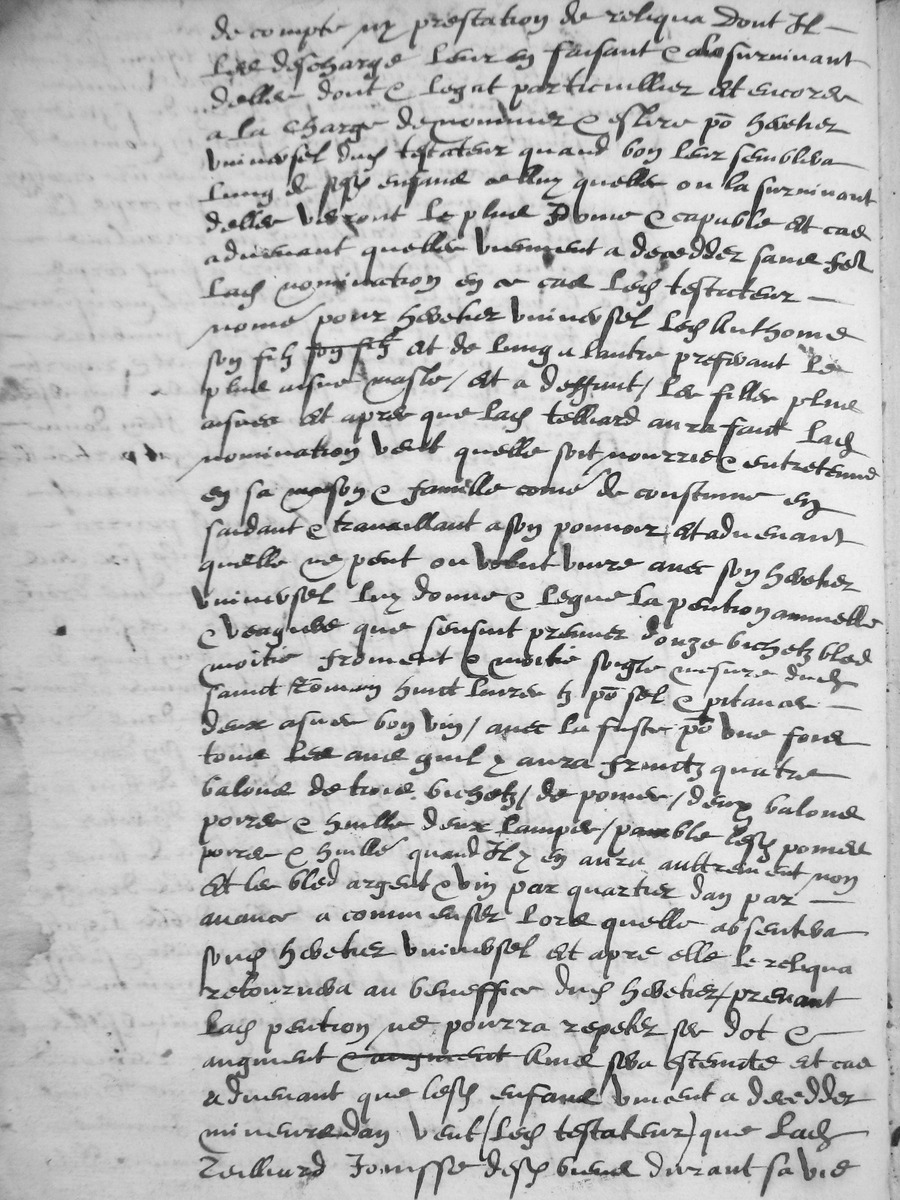 de compte ny prestation de reliqua dont Il
les descharge leur en faisant & a la survivant
delles dont & legat particullier et encores
a la charge de nommer & eslire po hereter
universel dud testateur quand bon leur semblera
lung de sesd enfans celluy quelles ou la survivant
delles verront le plus Idoine & capable et cas
advenant quelles viennent a decedder sans fere
lad nomination en ce cas led testateur
nomé pour heretier universel led Anthoine
son filz son filz et de lung a lautre preferant le
plus aisne masle / et a deffaut / les filles plus
aisnes et apres que lad telliard aura faict lad
nomination veut quelle soit nourrie & entretenue
en sa maison & famille comé de coustume en
saidant & travaillant a son pouvoir et advenant
quelle ne peut ou veleut vivre avec son heretier
universel luy donne & legue la pention annuelle
& viagiere que sensuit premier douze bichetz bled
moitie froment & moitie soigle mesure dud
sainct Romain huict livres tz po sel & pitance
deux asnes bon vin / avec la fuste po une fois
tous les ans quil y aura fruictz quatre
balons de trois bichetz / de pomes / deux balons
poires & huille deux lampes / payable lesd pomes
poires & huille quand Il y en aura aultrement non
et le bled argent & vin par quartier dan par
avance a commenser lors quelle absentera
sond heretier universel et apres elle le reliqua
retournera au beneffice dud heretier / prenant
lad pention ne pourra repeter ses dot &
augment & augment Ains sera esteincte et cas
advenant que lesd enfans vinent a decedder
mineurs dan veut / led testateur / que lad
Teilliard Jouisse desd biens durant sa vie